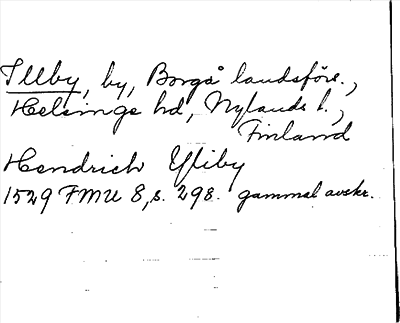 Illby, by, Borgå landsförs.,
Helsinge hd, Nylands l.,
Finland
Hendrich Yliby
1529 FMU 8, s. 298. gammal avskr.